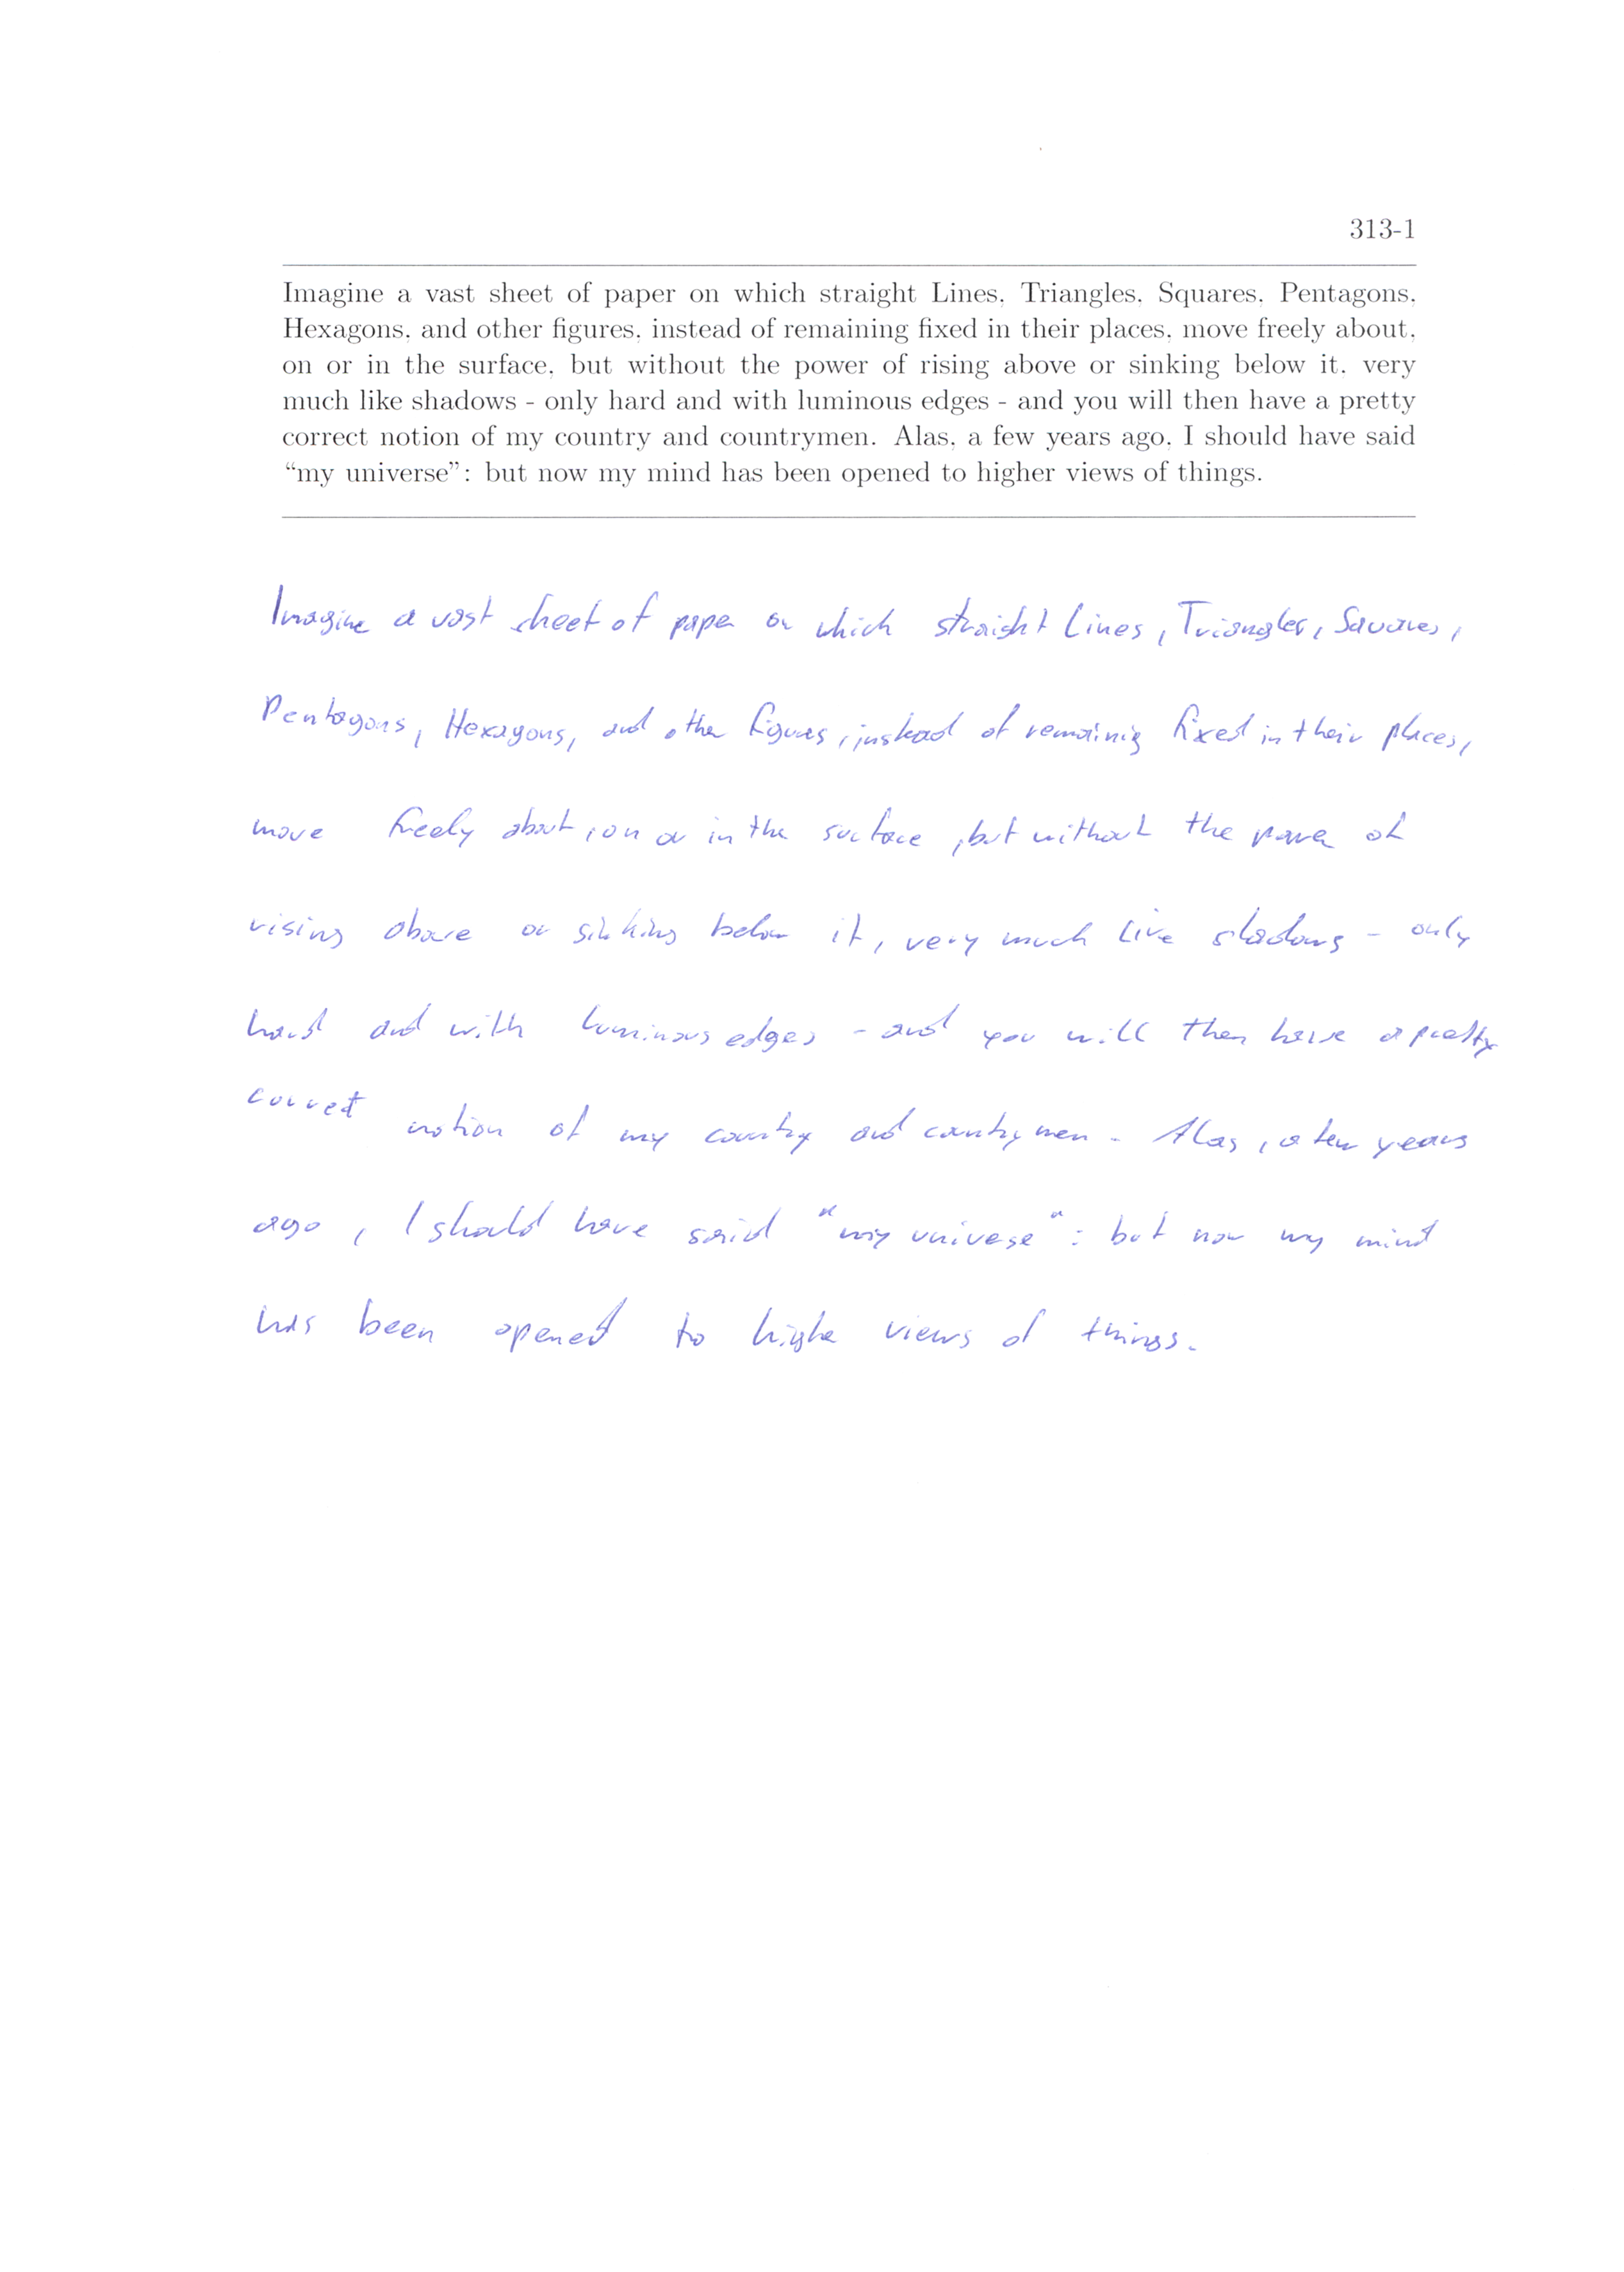 313-1
Imagine a vast sheet of paper on which straight Lines, Triangles, Squares, Pentagons,
Hexagons, and other figures, instead of remaining fixed in their places, move freely about,
on or in the surface, but without the power of rising above or sinking below it, very
much like shadows - only hard and with luminous edges - and you will then have a pretty
correct notion of my country and countrymen. Alas, a few years ago, I should have said
“my universe”: but now my mind has been opened to higher views of things.
Imagine a vast sheet of paper on which straight Lines, Triangles, Squares,
Pentagons, Hexagons, and other figures, instead of remaining fixed in their places,
move freely about, on or in the surface, but without the power of
rising above or sinking below it, very much like shadows - only
hard and with luminous edges - and you will then have a pretty
correct notion of my country and countrymen. Alas, a few years
ago, I should have said "my universe": but now my mind
has been opened to higher views of things.